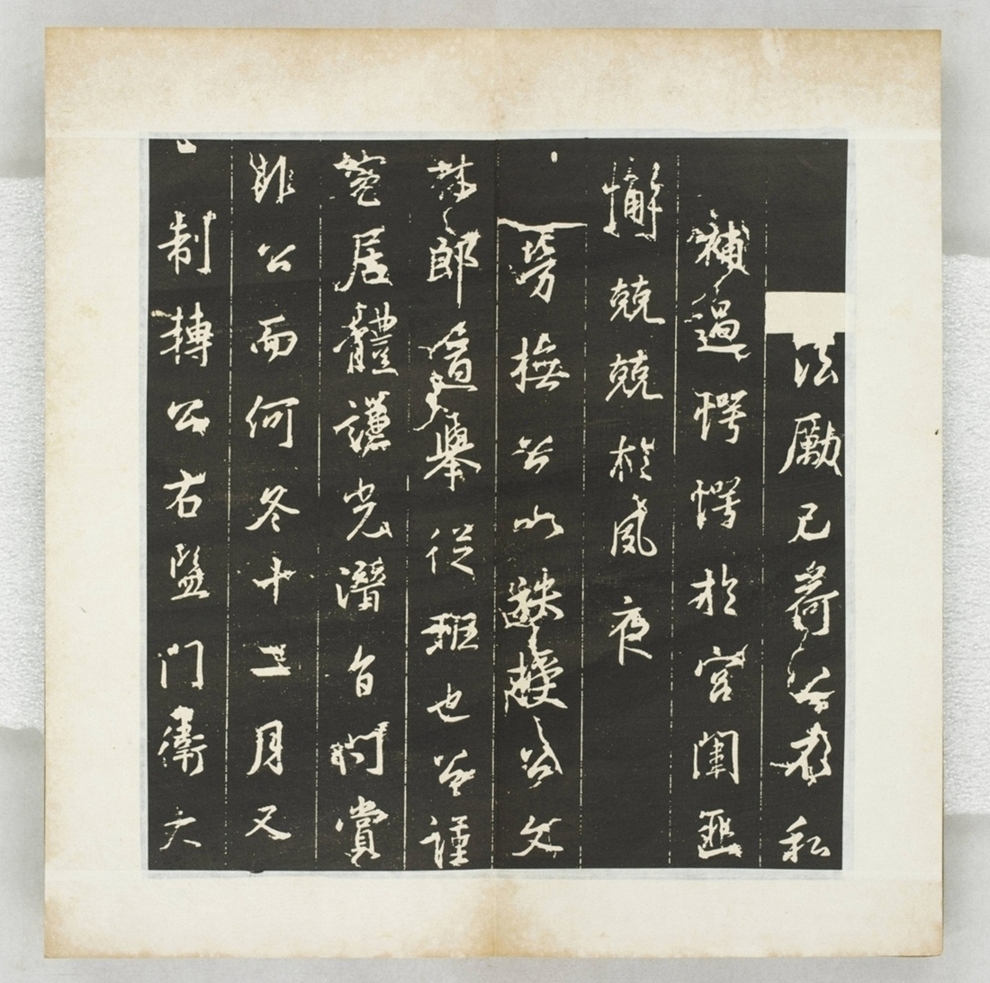 法勵己荷公私
補過愕愕於宮闈匪
懈兢兢於夙夜
旁撫公以公文
林郎適舉從班也公謹
居體謙光潛自賞
公而何冬十二月又
制轉公右監門衛大